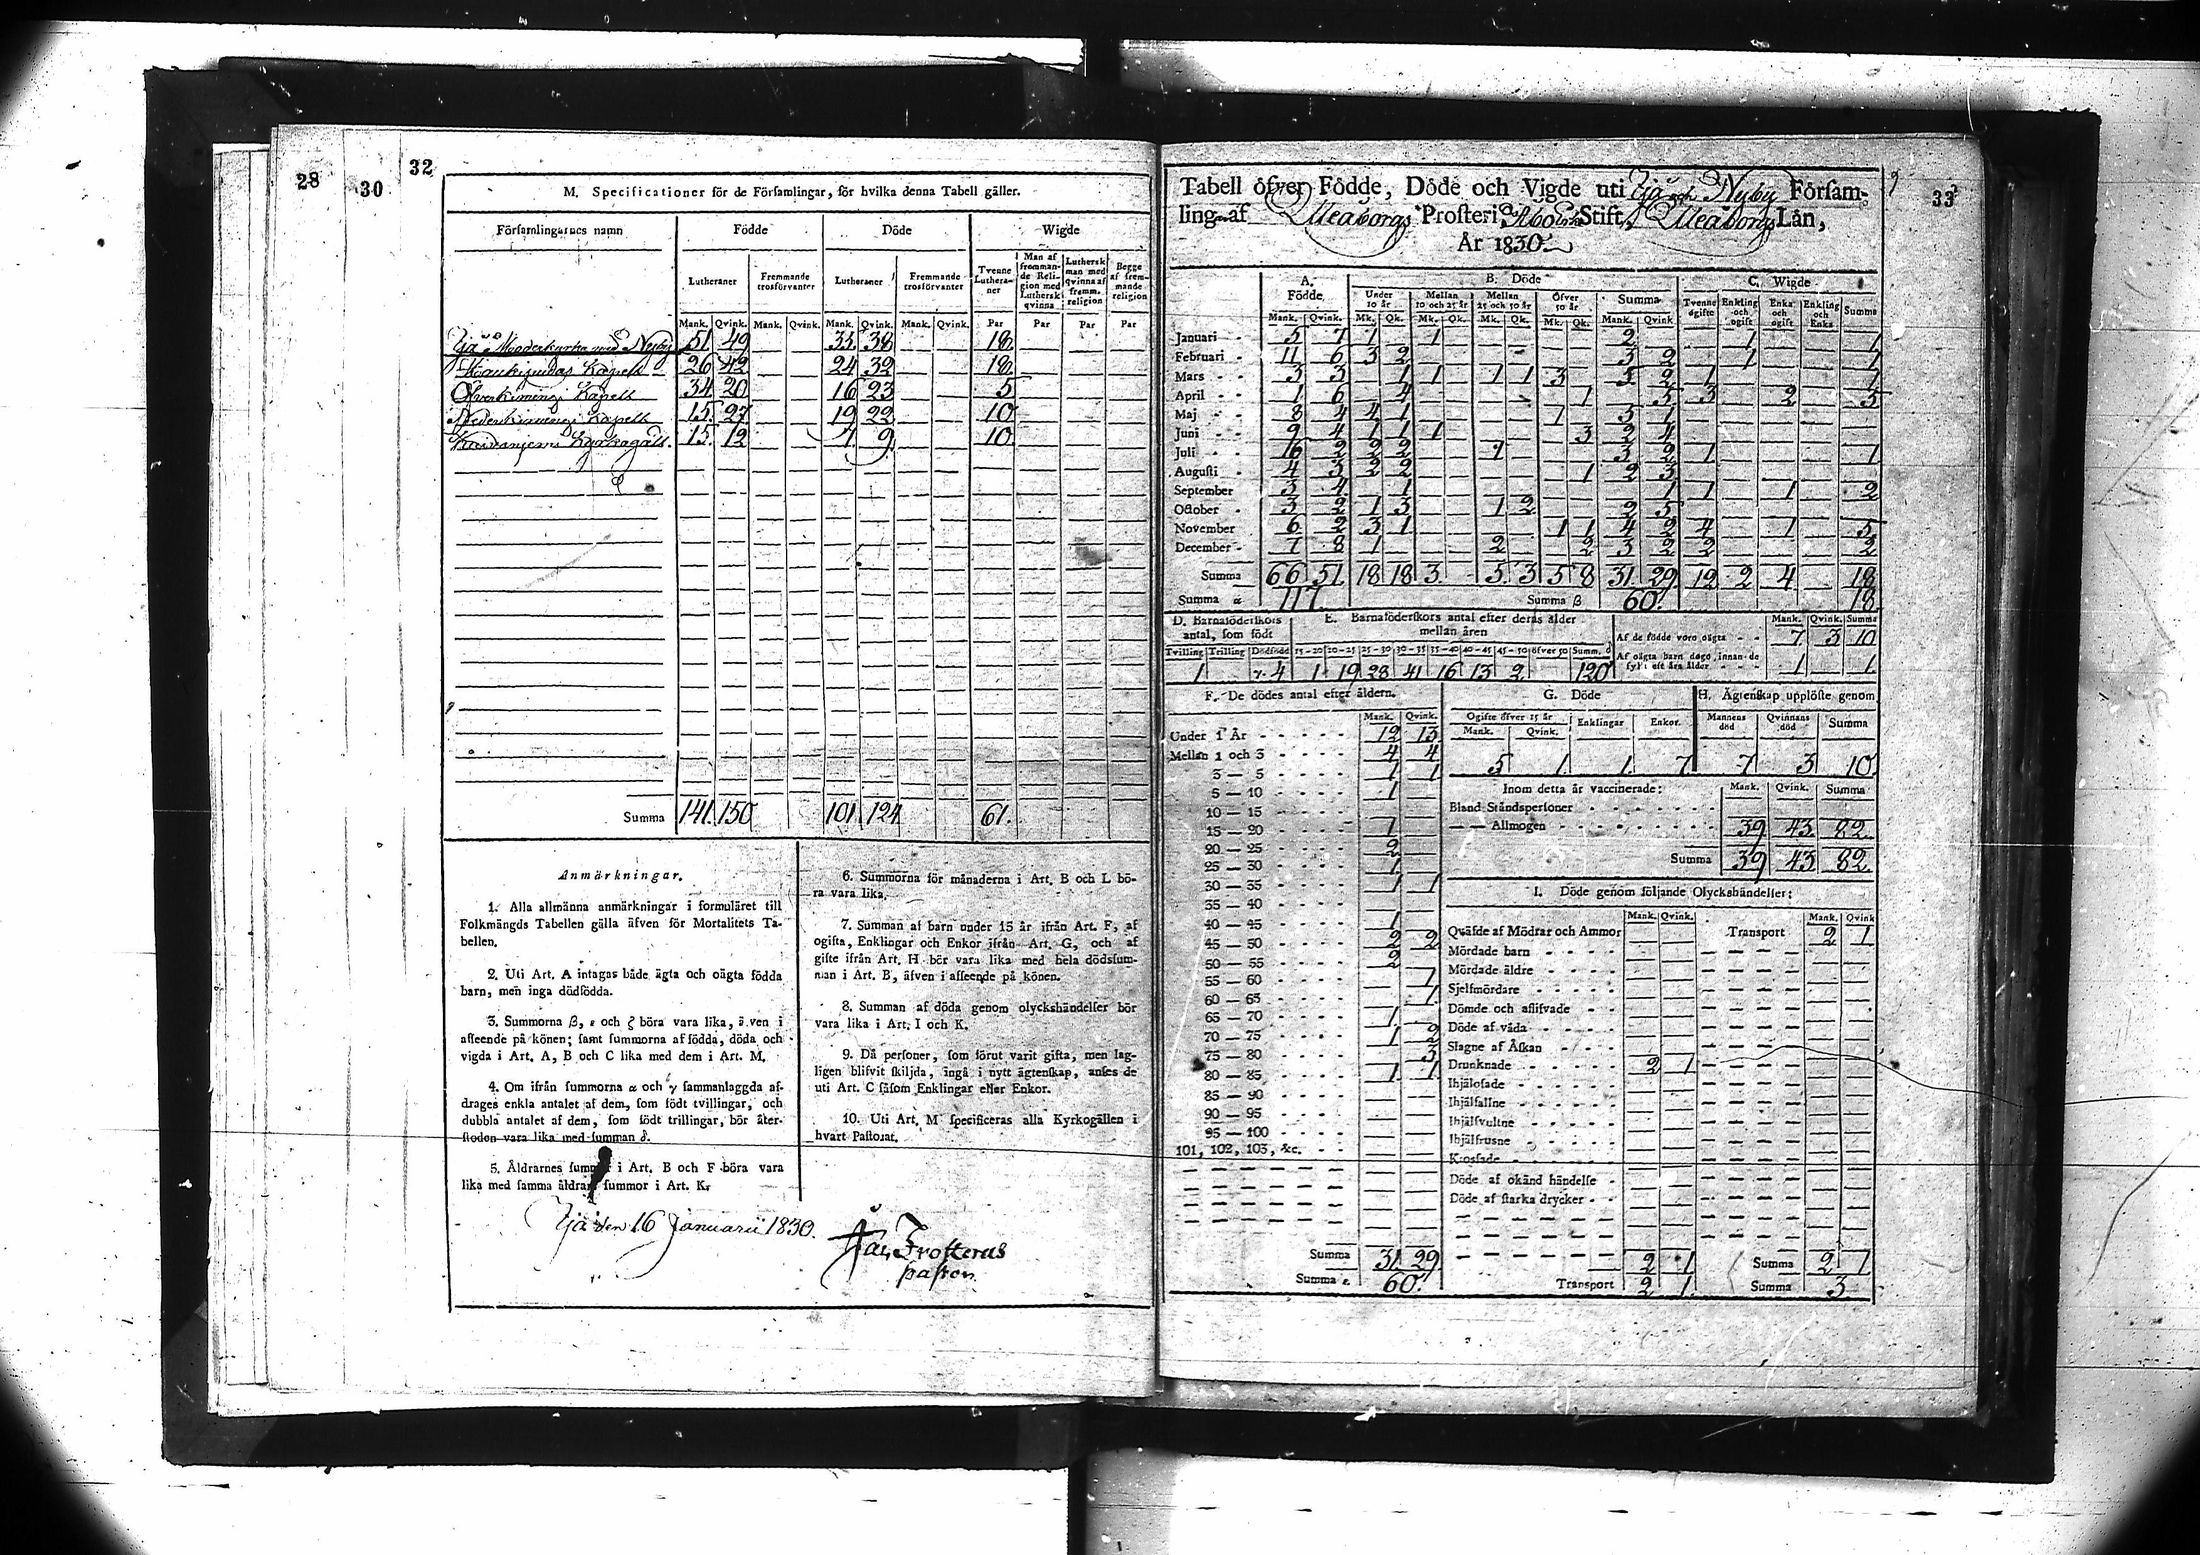 28
30
32
M. Specificationer för de Församlingar, för hvilka denna Tabell gäller.
Församlingarnes namn Födde Döde Wigde
Lutheraner Fremmande trosförvanter Lutheraner Fremmande trosförvanter Tvenne Lutheraner Man af fremmande Religion med Luthersk qvinna Luthersk man med qvinna af fremm. religion Begge af fremmande religion
Mank. Qvink. Mank. Qvink. Mank. Qvink. Mank. Qvink. Par Par Par Par
Ijå Moderkyrka med Nyby 51 49 35 38 18
Haukipudas Kapell 26 42 24 32 18
Öfverkiminge Kapell 34 20 16 23 5
Nederkiminge Kapell 15 27 19 22 10
15 12 7 9 10
Summa 141 150 101 124 61.
Anmärkningar.
1. Alla allmänna anmärkningar i formuläret till
Folkmängds Tabellen gälla äfven för Mortalitets Ta-
bellen.
2. Uti Art. A intagas både ägta och oägta födda
barn, men inga dödfödda.
3. Summorna β, ε och ζ böra vara lika, äfven i
afseende på könen; samt summorna af födda, döda och
vigda i Art. A, B och C lika med dem i Art. M.
4. Om ifrån summorna α och γ sammanlaggda af-
drages enkla antalet af dem, som födt tvillingar, och
dubbla antalet af dem, som födt trillingar, bör åter-
stoden vara lika med summan δ.
5. Åldrarnes summor i Art. B och F böra vara
lika med samma åldrars summor i Art. K.
6. Summorna för månaderna i Art. B och L bö-
ra vara lika.
7. Summan af barn under 15 år ifrån Art. F, af
ogifta, Enklingar och Enkor ifrån Art. G, och af
gifte ifrån Art. H bör vara lika med hela dödssum-
man i Art. B, äfven i afseende på könen.
8. Summan af döda genom olyckshändelser bör
vara lika i Art. I och K.
9. Då personer, som förut varit gifta, men lag-
ligen blifvit skiljda, ingå i nytt ägtenskap, anses de
uti Art. C såsom Enklingar eller Enkor.
10. Uti Art. M specificeras alla Kyrkogällen i
hvart Pastorat.
Ijå den 16 Januarii 1830.
Frosterus
pastor.
33
Tabell öfver Födde, Döde och Vigde uti Ijå och Nyby Försam-
ling af Uleåborgs Prosteri Åbo Stift, Uleåborgs Län,
År 1830
A. Födde B. Döde C. Wigde
Under 10 år Mellan 10 och 25 år Mellan 25 och 50 år Öfver 50 år Summa Tvenne ogifte Enkling och ogift Enka och ogift Enkling och Enka Summa
Mank. Qvink. Mk. Qk. Mk. Qk. Mk. Qk. Mk. Qk. Mank. Qvink
Januari 5 7 1 1 2 1 1
Februari 11 6 3 2 3 2 1 1
Mars 3 3 1 1 1 1 3 5 2 1 1
April 1 6 4 1 5 3 2 5
Maj 8 4 4 1 1 5 1
Juni 9 4 1 1 1 3 2 4
Juli 16 2 2 2 1 3 2 1 1
Augusti 4 3 2 2 1 2 3
September 3 4 1 1 1 1 2
October 3 2 1 3 1 2 2 5
November 6 2 3 1 1 1 4 2 4 1 5
December 7 8 1 2 2 3 2 2 2
Summa 66 51 18 18 3 5 3 5 8 31 29 12 2 4 18
Summa α 117 Summa β 60. 18
D. Barnaföderskors antal, som födt
E. Barnaföderskors antal efter deras ålder mellan åren
Tvilling Trilling Dödfödd 15-20 20-25 25-30 30-35 35-40 40-45 45-50 öfver 50 Summ. δ
1 γ. 4 1 19 28 41 16 13 2 120
Mank. Qvink. Summa
Af de födde voro oägta 7 3 10
Af oägta barn dogo innan de fyllt ett års ålder 1 1
F. De dödes antal efter åldern.
Mank. Qvink.
Under 1 År 12 13
Mellan 1 och 3 4 4
3 — 5 1 1
5 — 10 1
10 — 15
15 — 20 1
20 — 25 2
25 — 30 1
30 — 35 1 1
35 — 40
40 — 45 1
45 — 50 2 2
50 — 55 2
55 — 60 1
60 — 65 1
65 — 70 1
70 — 75 1 2
75 — 80 3
80 — 85 1 1
85 — 90
90 — 95
95 — 100
101, 102, 103, &c.
Summa 31 29
Summa ε. 60.
G. Döde
Ogifte öfver 15 år Enklingar Enkor.
Mank. Qvink.
5 1 1 7
H. Ägtenskap upplöste genom
Mannens död Qvinnans död Summa
7 3 10
Inom detta år vaccinerade: Mank. Qvink. Summa
Bland Ståndspersoner
— — Allmogen 39 43 82
Summa 39 43 82
I. Döde genom följande Olyckshändelser:
Mank. Qvink. Mank. Qvink
Qväfde af Mödrar och Ammor Transport 2 1
Mördade barn
Mördade äldre
Sjelfmördare
Dömde och aflifvade
Döde af våda
Slagne af Åskan
Drunknade 2 1
Ihjälosade
Ihjälfallne
Ihjälsvultne
Ihjälfrusne
Krossade
Döde af okänd händelse
Döde af starka drycker
2 1 Summa 2 1
Transport 2 1 Summa 3